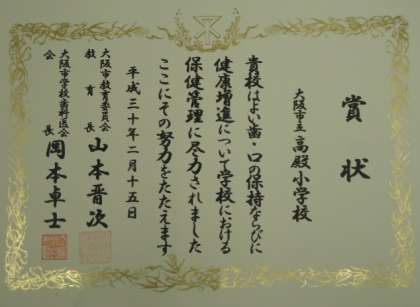 賞状
大阪市立高殿小学校
貴校はよい歯・口の保持ならびに
健康増進について学校における
保健管理に尽力されました
ここにその努力をたたえます
平成三十年二月十五日
大阪市教育委員会
教育長 山本晋次
大阪市学校歯科医会
会長 岡本卓士